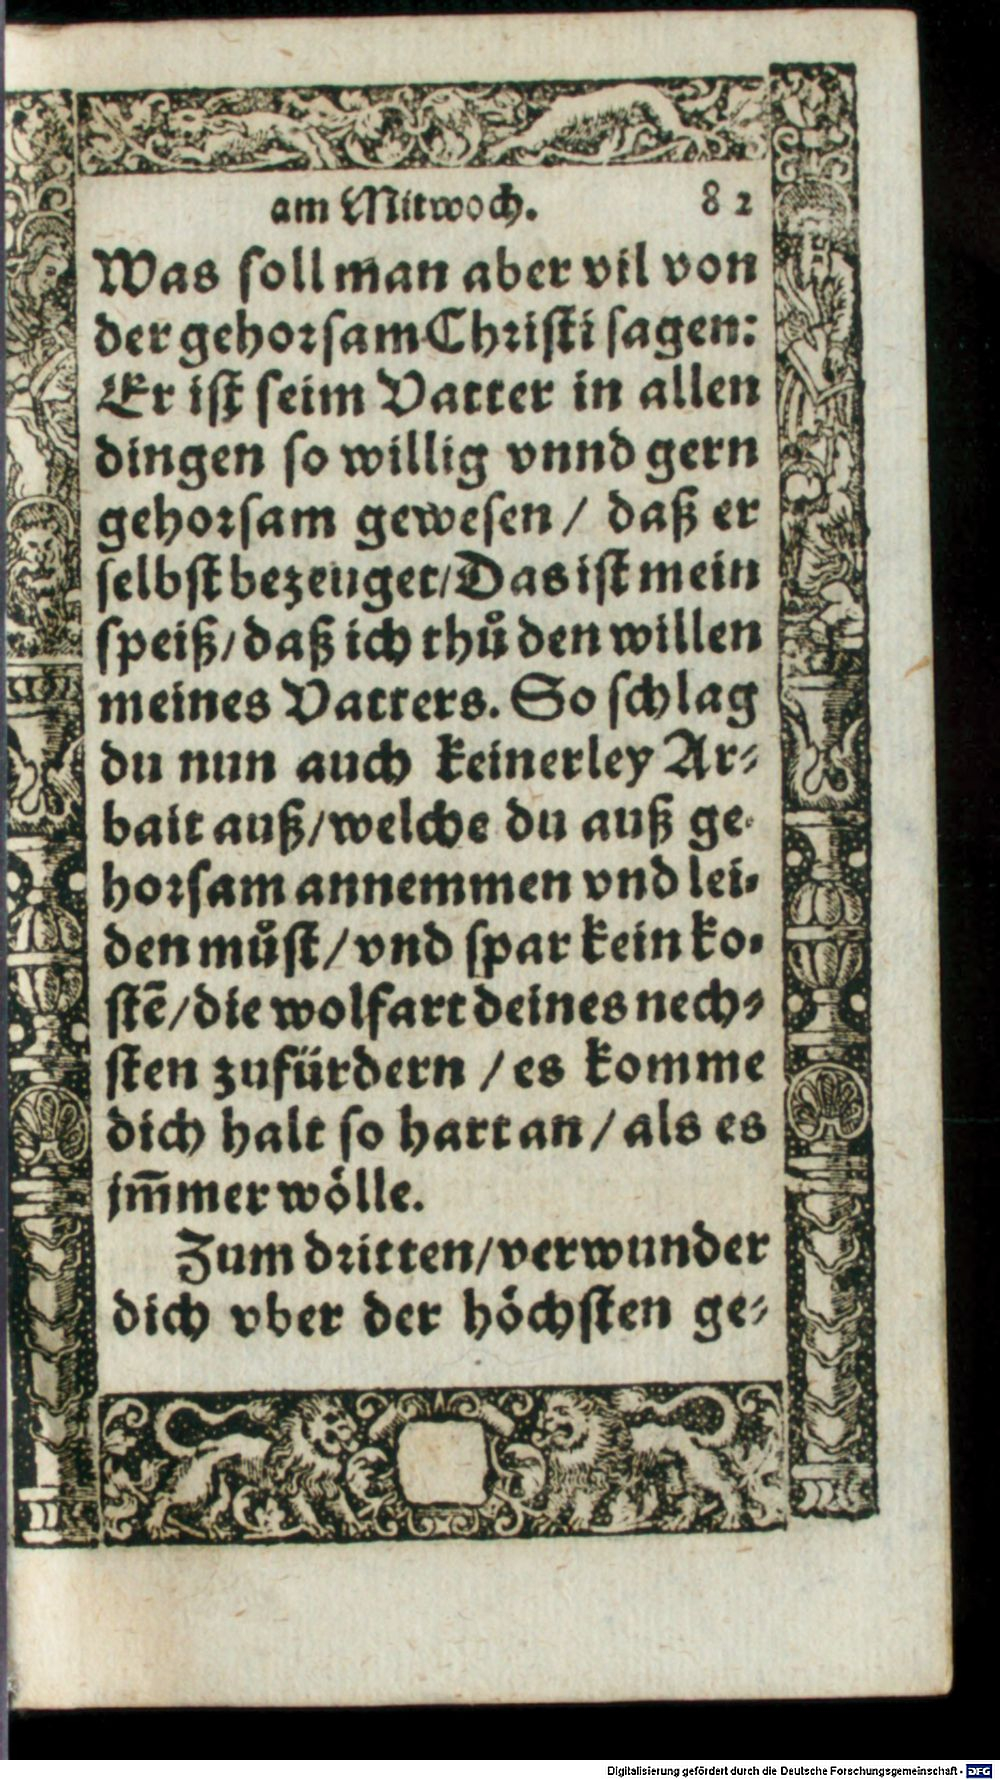 am Mitwoch. 82
Was soll man aber vil von
der gehorsam Christi sagen:
Er ist seim Vatter in allen
dingen so willig vnnd gern
gehorsam gewesen / daß er
selbst bezeuget / Das ist mein
speiß / daß ich thů den willen
meines Vatters. So schlag
du nun auch keinerley Ar-
bait auß / welche du auß ge-
horsam annemmen vnd lei-
den můst / vnd spar kein ko-
stē / die wolfart deines nech-
sten zufürdern / es komme
dich halt so hart an / als es
jm̄mer wölle.
Zum dritten / verwunder
dich vber der höchsten ge-
Digitalisierung gefördert durch die Deutsche Forschungsgemeinschaft - DFG